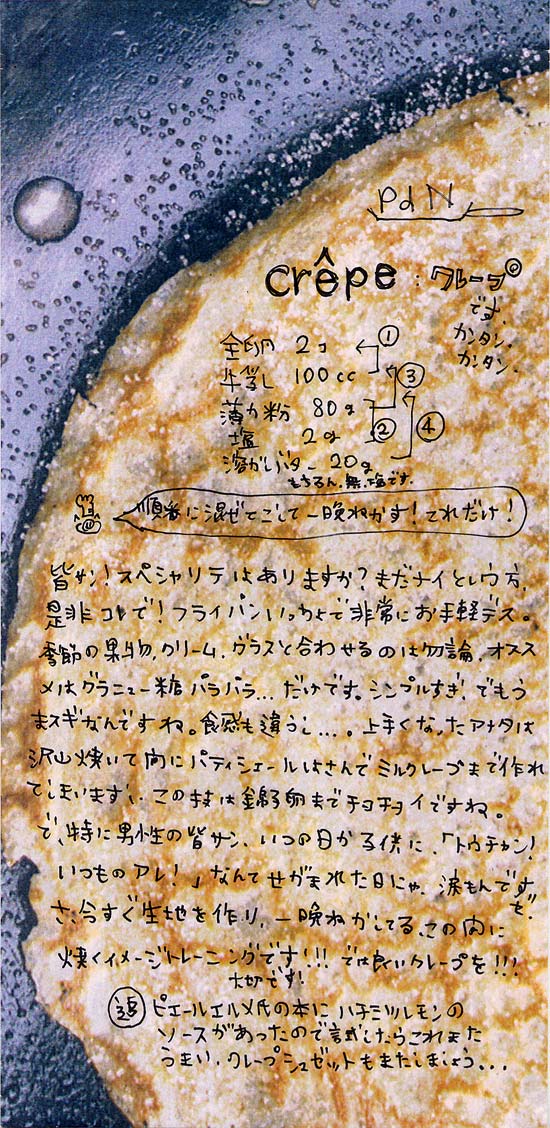 PdN
crêpe : クレープ
です。
カンタン。
カンタン。
全卵 2コ ①
牛乳 100cc ③
薄力粉 80g
塩 2g ② ④
溶かしバター 20g
もちろん、無塩です。
順番に混ぜてこして一晩ねかす!それだけ!
皆サン!スペシャリテはありますか?まだナイという方、
是非コレで!フライパンいっちょで非常にお手軽デス。
季節の果物、クリーム、グラスと合わせるのは勿論、オスス
メはグラニュー糖パラパラ...だけです。シンプルすぎ!でもう
まスギなんですね。食感も違うし...。上手くなったアナタは
沢山焼いて間にパティシエールはさんでミルクレープまで作れ
てしまいますし、この技は錦糸卵までチョチョイですね。
で、特に男性の皆サン、いつの日か子供に、「トウチャン!
いつものアレ!」なんてせがまれた日にゃ、涙もんですゼ。
さ、今すぐ生地を作り、一晩ねかしてる、この間に
焼くイメージトレーニングです!!! では良いクレープを!!!
大切です!
ピエールエルメ氏の本にハチミツレモンの
ソースがあったので試したらこれまた
うまい。クレープシュゼットもまたしましょう...